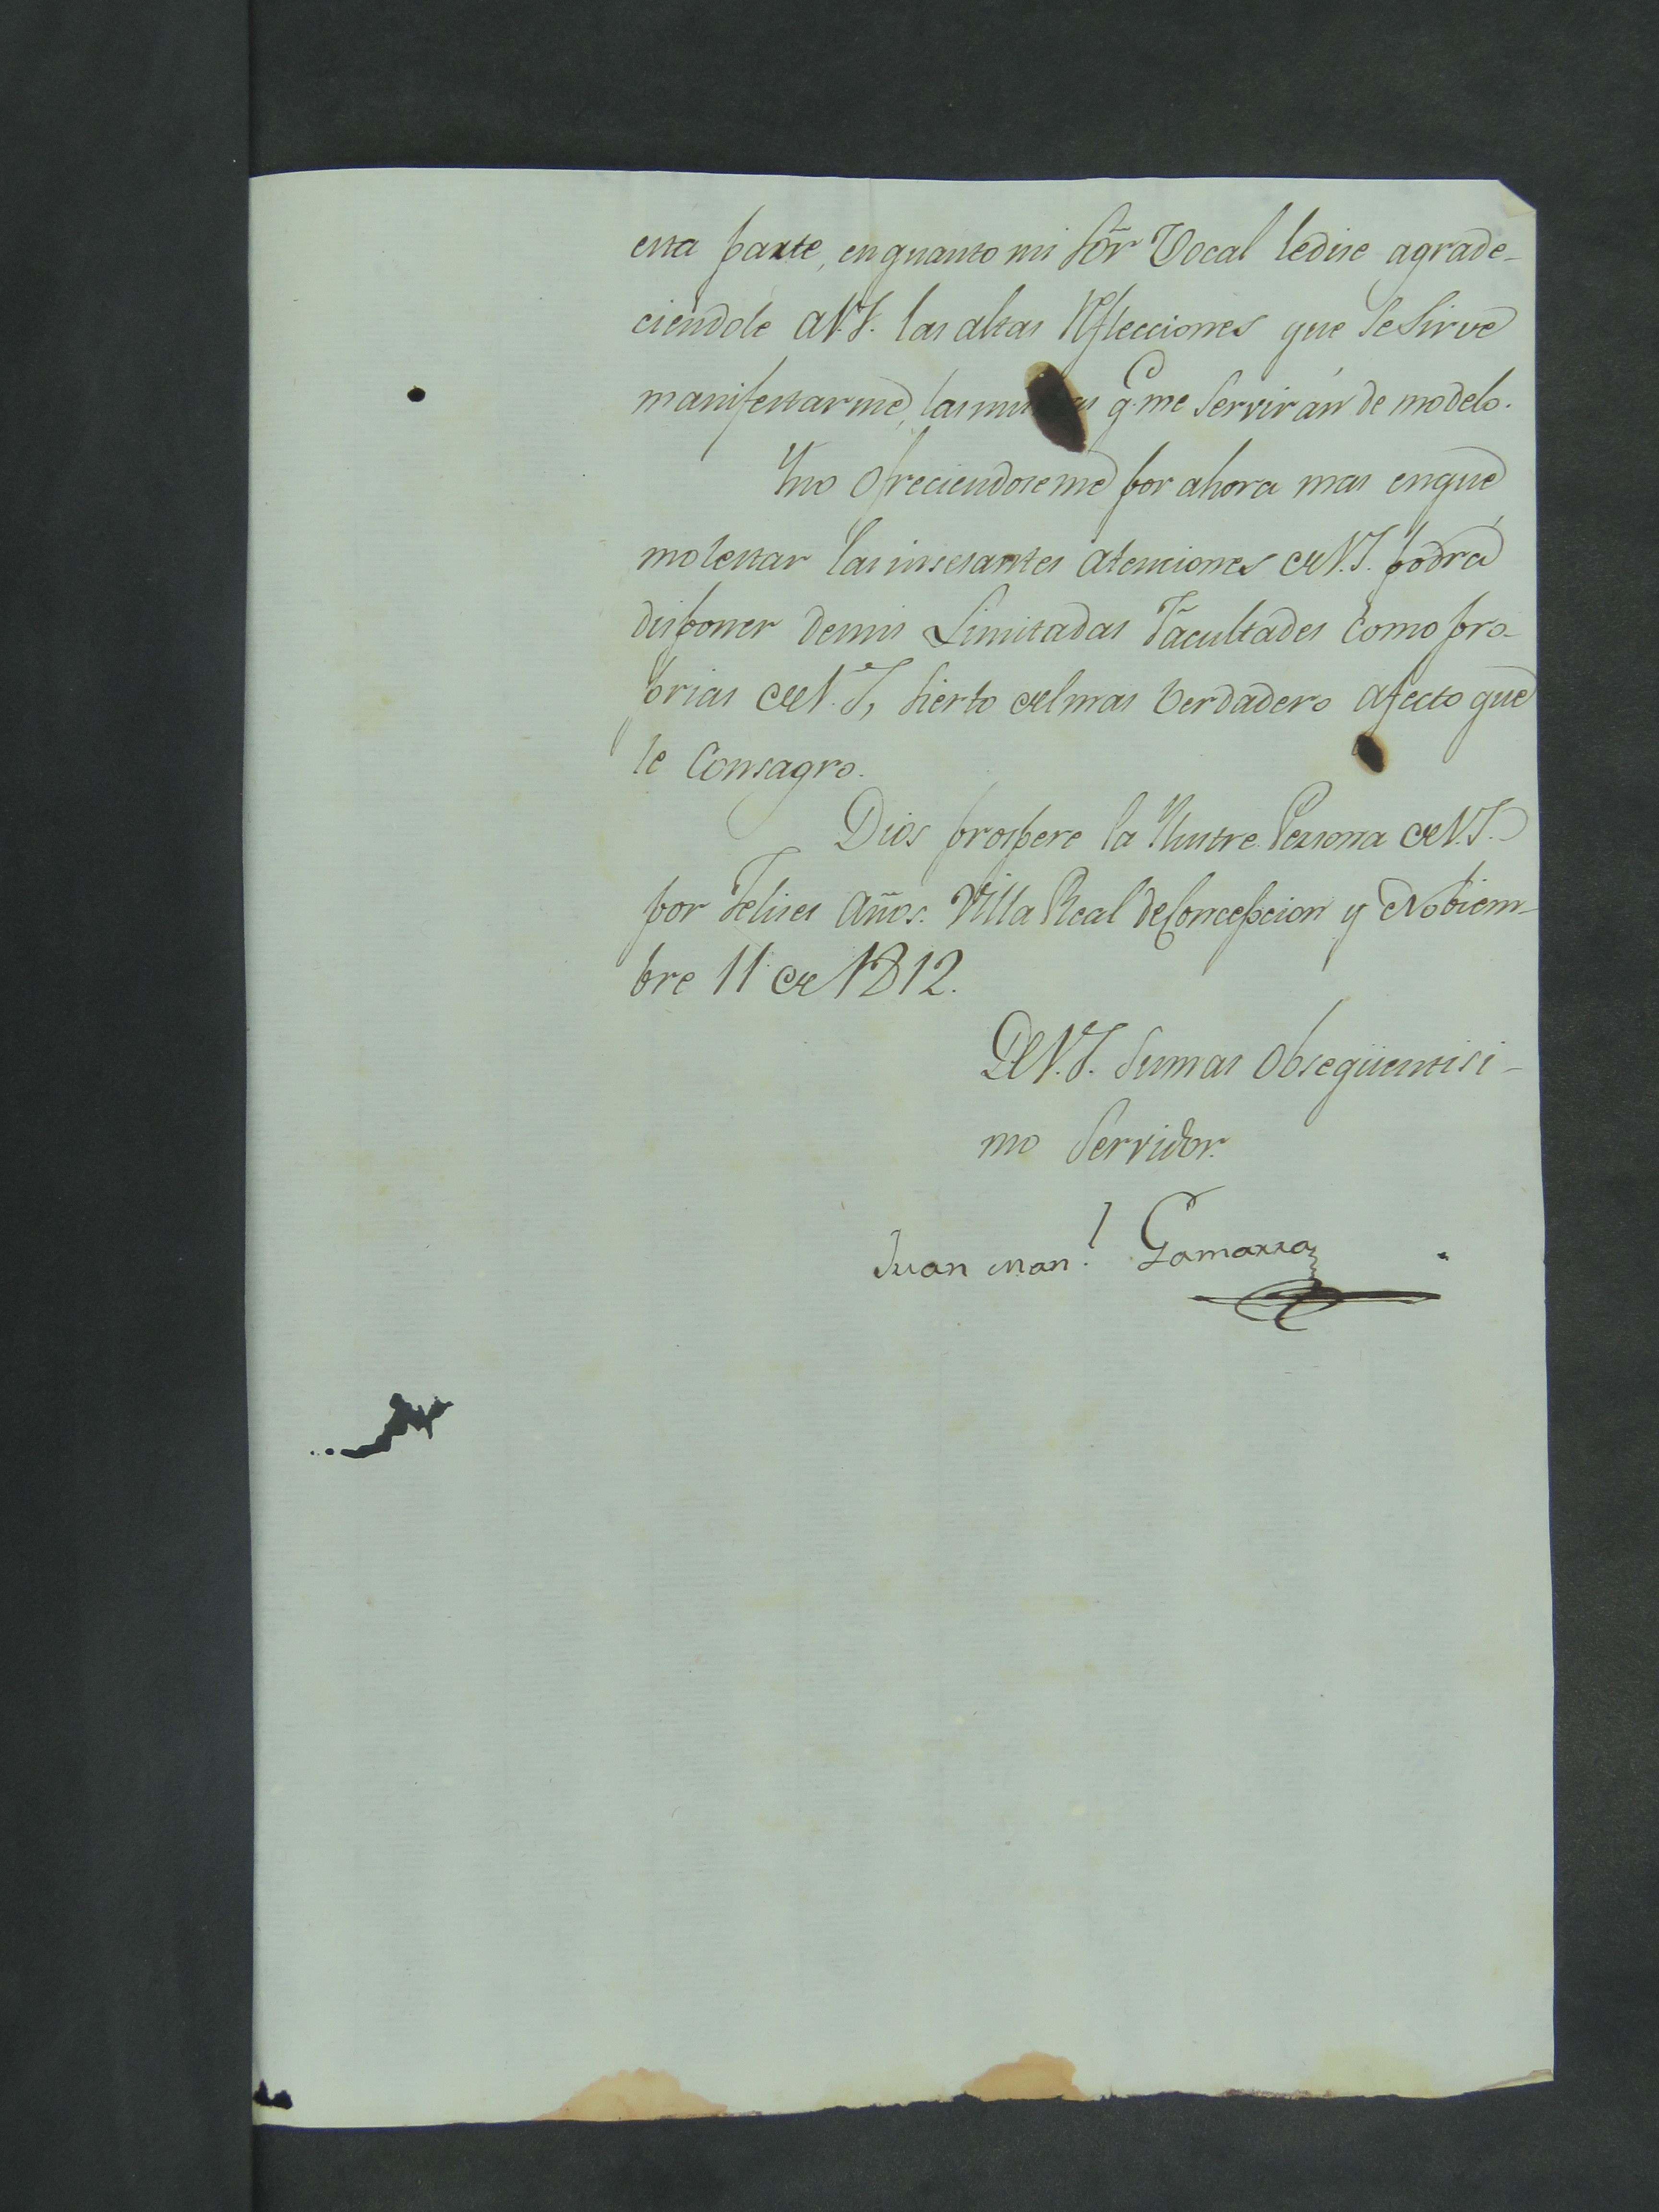 esta parte, en quanto mi Sōr Vocal le dise agrade-
ciendole a V.S. las altas Reflecciones que se sirve
manifestarme, las mis as q.e me servirán de modelo.
Y no ofreciendoseme por ahora mas en que
molestar las insesantes atenciones de V.S. podrá
disponer de mis Limitadas Facultades como pro-
prias de V.S, sierto del mas verdadero afecto que
le Consagro.
Dios prospere la Ylustre Persona de V.S.
por Felises Años. Villa Real de Concepcion y Nobiem-
bre 11 de 1812.
De V.S. su mas obsequentisi-
mo Servidor.
Juan Man.l Gamarra